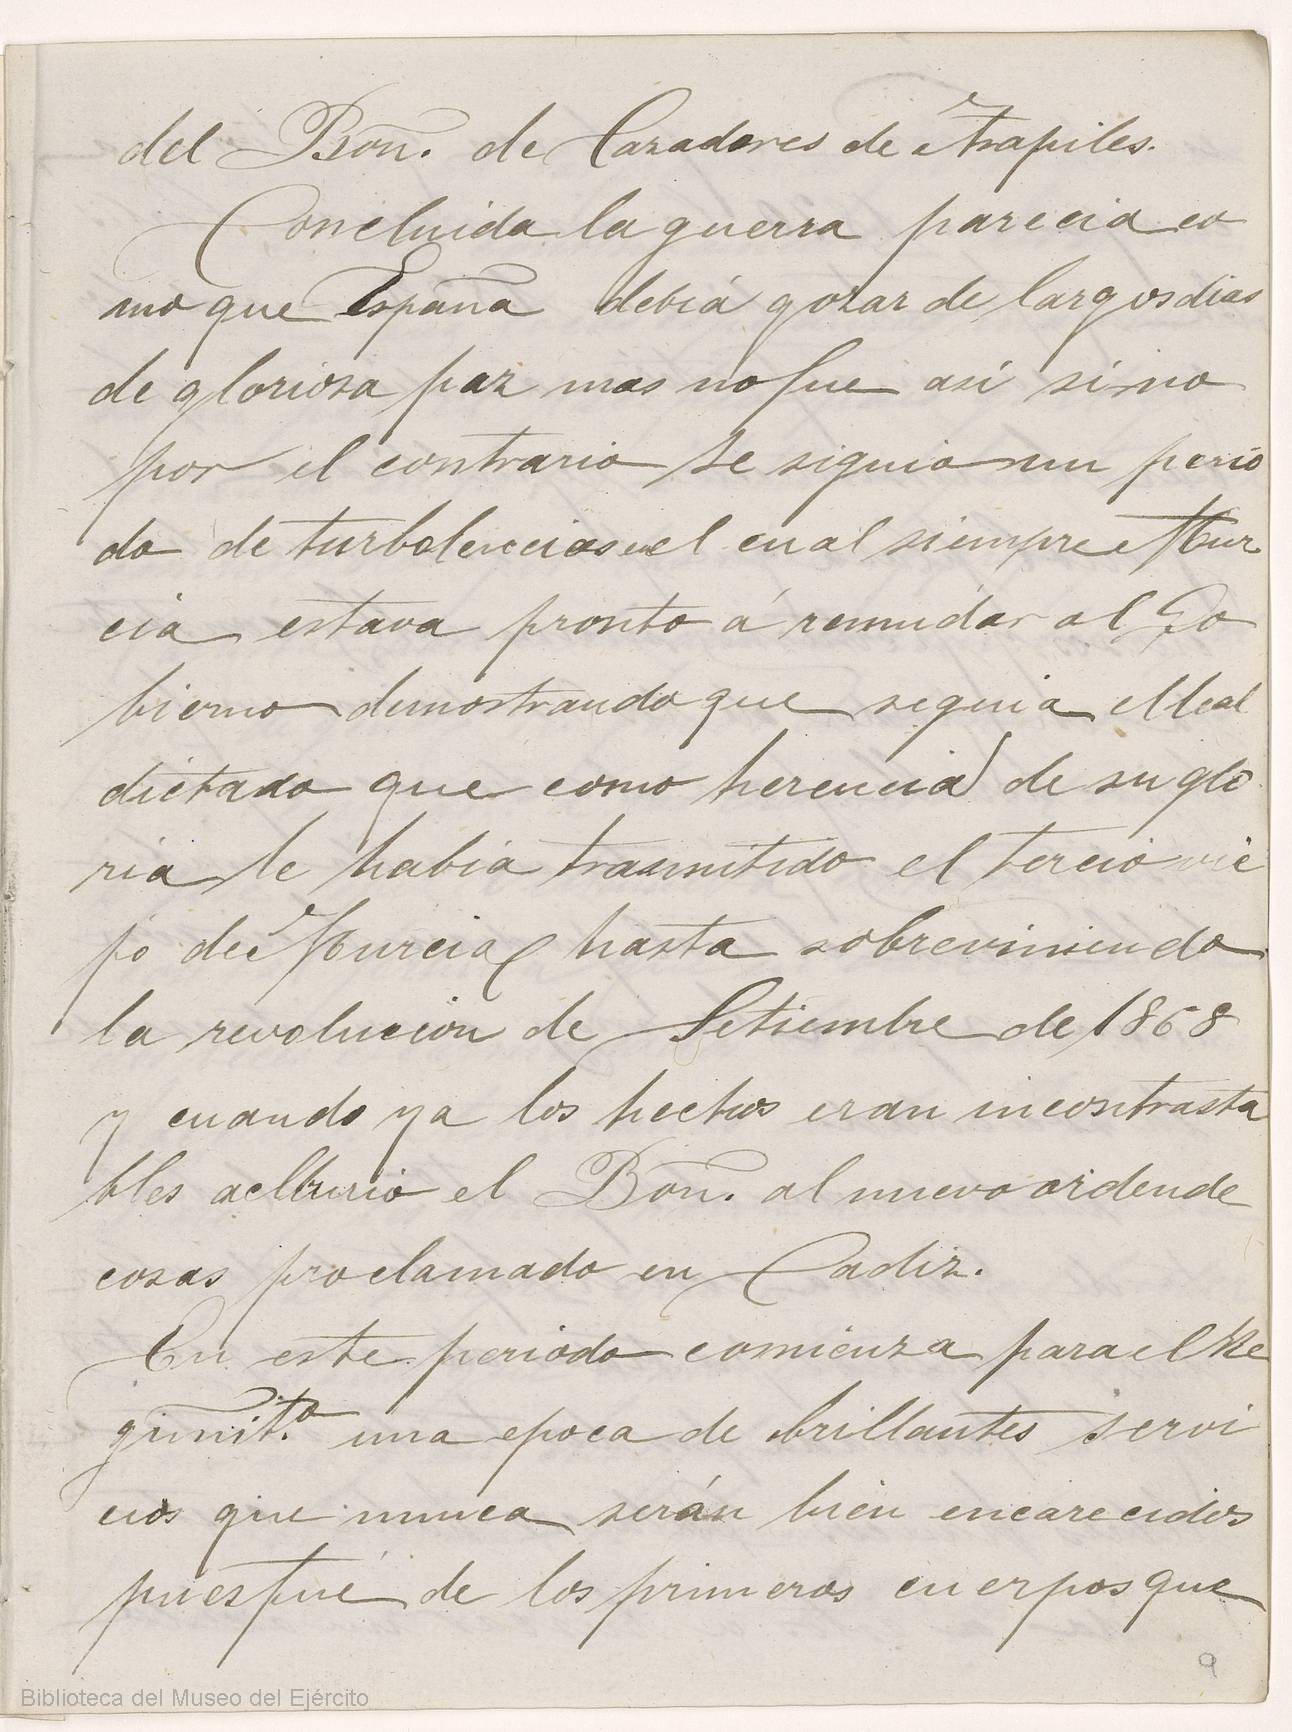 del Bon. de Cazadores de Arapiles.
Concluida la guerra parecia co
mo que España debiá gozar de largos dias
de gloriosa paz mas no fue asi sino
por el contrario se siguio un perio
do de turbolencias en el cual siempre Mur
cia estava pronto á remudar al Go
bierno demostrando que seguia el leal
dictado que como herencia de su glo
ria le habia trasmitido el tercio vie
jo de Murcia hasta sobreviniendo
la revolucion de Setiembre de 1868
y cuando ya los hechos eran incontrasta
bles el Bon. al nuevo orden de
cosas proclamado en Cadiz.
En este periodo comienza para el Re
gimit.º una epoca de brillantes servi
cios que nunca serán bien encarecidos
pues fué de los primeros cuerpos que
9
Biblioteca del Museo del Ejército